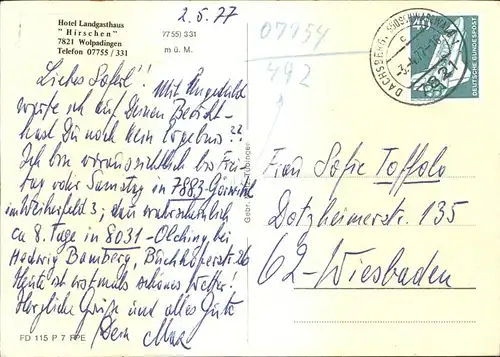 Hotel Landgasthaus
"Hirschen"
7821 Wolpadingen
Telefon 07755/331
7755) 331
m ü. M.
2.5.77
07754
492
DACHSBERG (SÜDSCHWARZWALD)
7821
DEUTSCHE BUNDESPOST
Liebes Soferl! Mit Ungeduld
warte ich auf Deinen Bericht –
hast Du noch kein Ergebnis??
Ich bin voraussichtlich bis Frei-
tag oder Samstag in 7883-Görwihl
im Weiherfeld 3, dann wahrscheinlich
ca 8. Tage in 8031-Olching, bei
Hedwig Bamberg, Buchhoferstr.
Heute ist erstmals schönes Wetter!
Herzliche Grüße und alles Gute
Dein Max
Frau Sofie Toffolo
Dotzheimerstr. 135
62-Wiesbaden
FD 115 P 7 RPE
Gebr. Metz, Tübingen